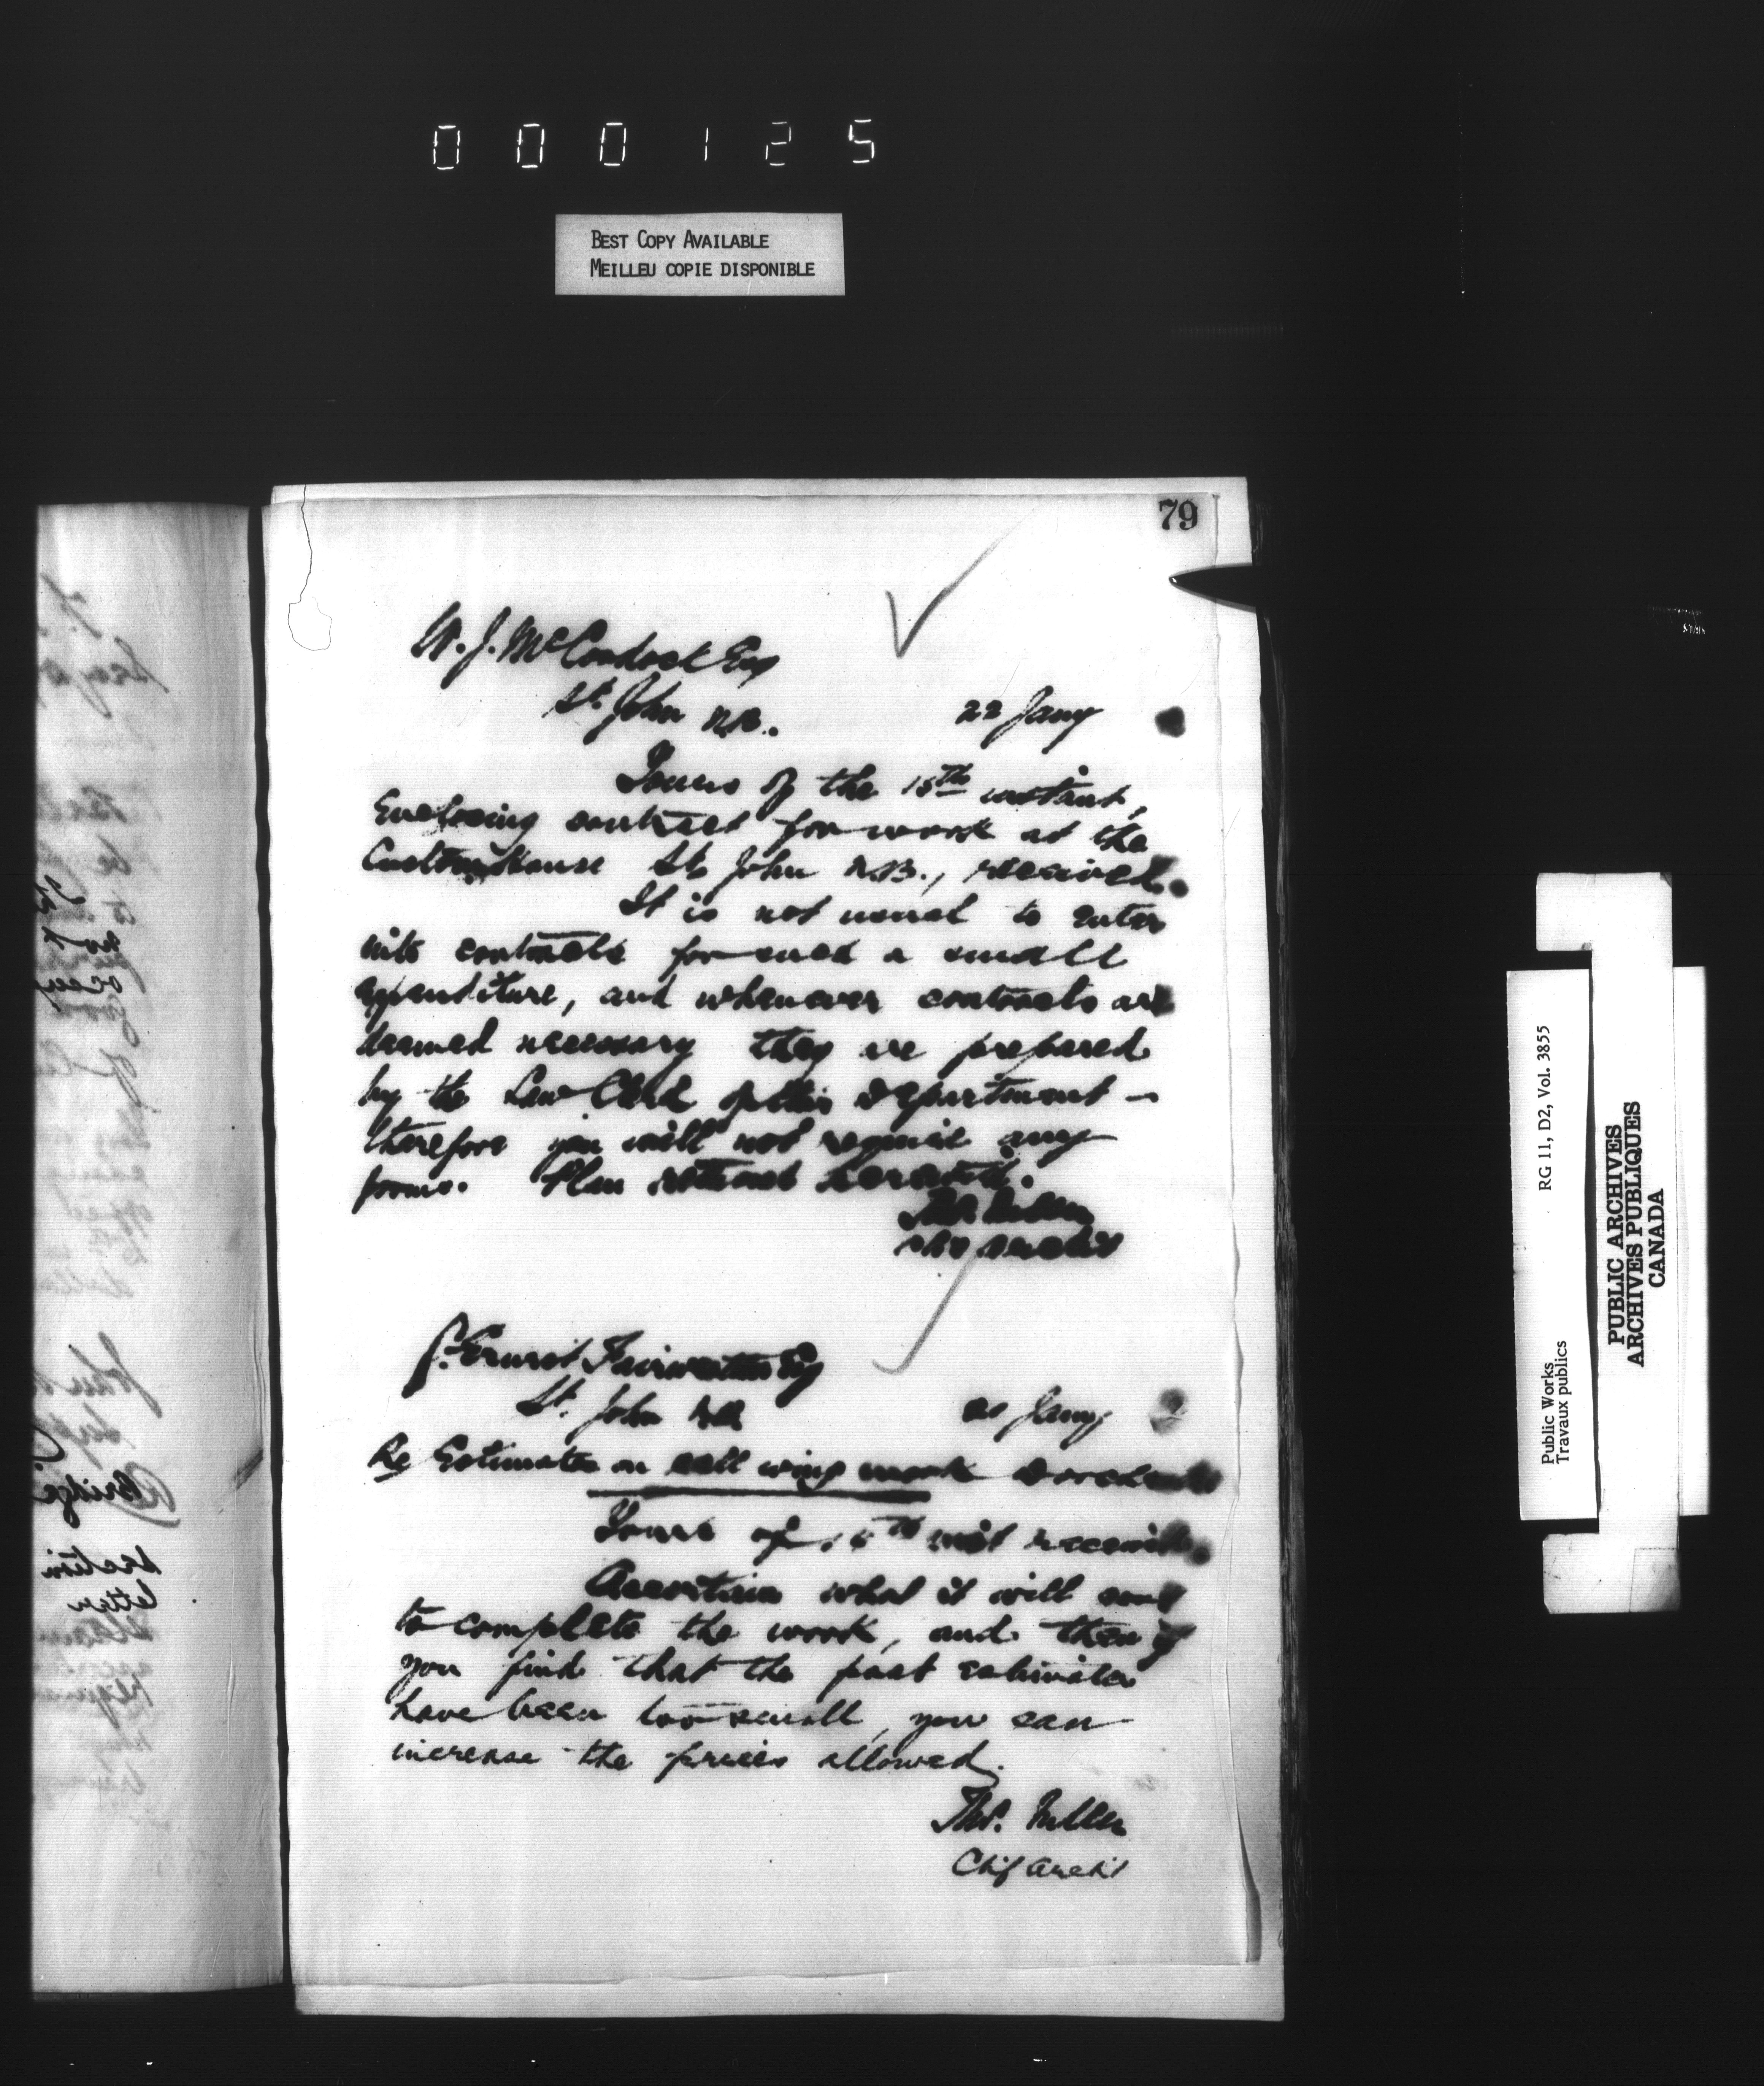 000125
BEST COPY AVAILABLE
MEILLEU COPIE DISPONIBLE
79
W. J. McCordock Esq
St. John N.B. 22 Jany
Yours of the 15th instant,
Enclosing contract for work at the
Custom House St John N.B., received.
It is not usual to enter
into contracts for such a small
expenditure, and whenever contracts are
deemed necessary they are prepared
by the Law Clerk of this Department –
therefore you will not require any
forms. Plan returned herewith.
Thos. Fuller
Chf Archit
J. Ernest Fairweather Esq
St. John NB Jany
Re Estimates on cell wing work Dorchester
Yours of 15th inst received.
Ascertain what it will cost
to complete the work, and then if
you find that the past estimates
have been too small, you can
increase the prices allowed.
Thos. Fuller
Chf Archt
RG 11, D2, Vol. 3855
Public Works
Travaux publics
PUBLIC ARCHIVES
ARCHIVES PUBLIQUES
CANADA